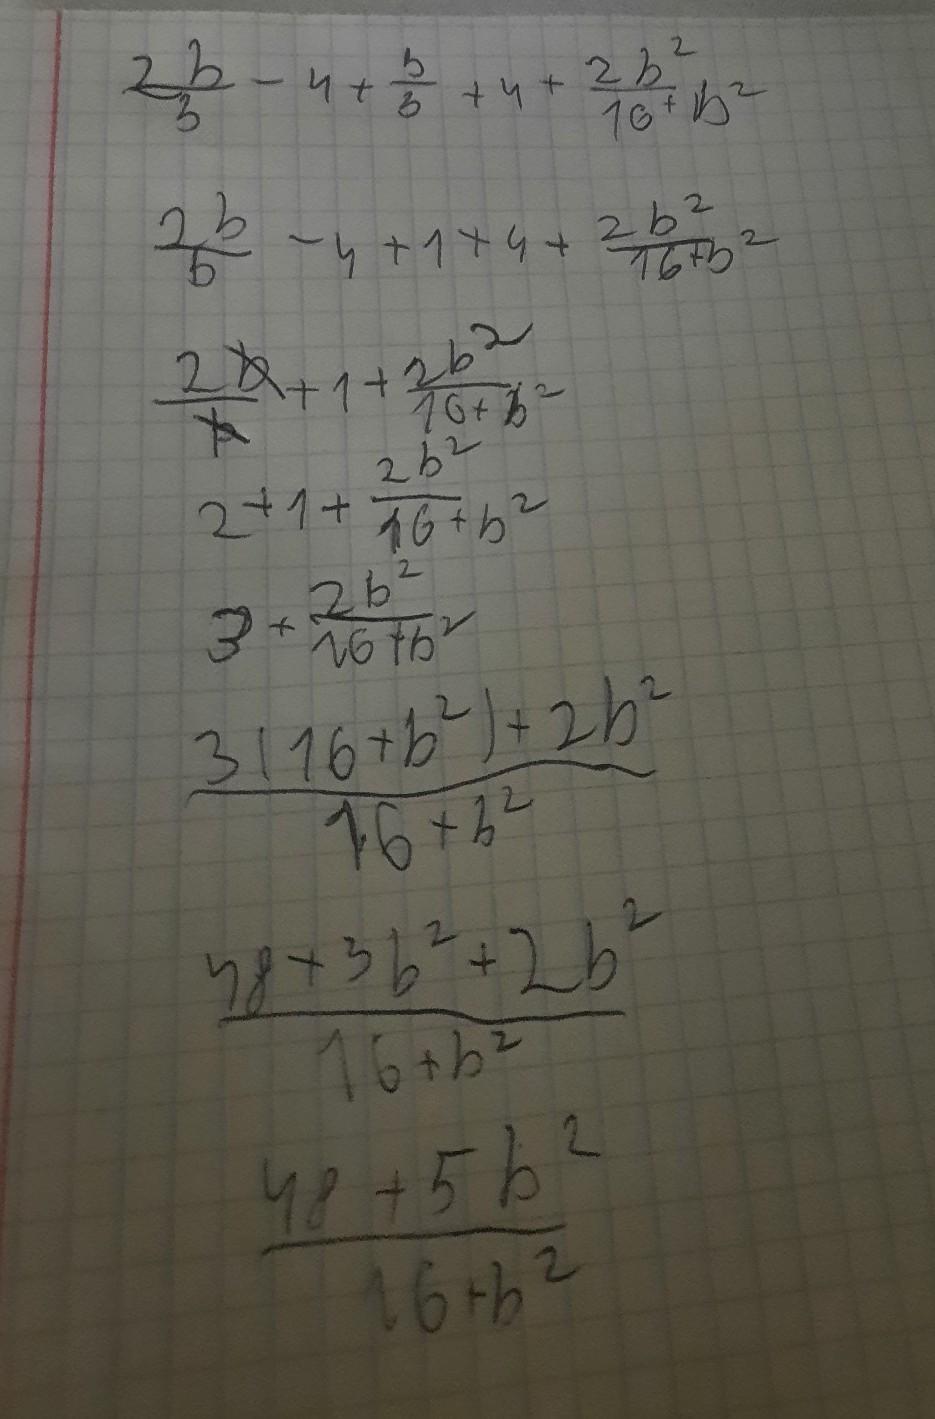 2b/3 - 4 + b/3 + 4 + 2b²/16+b²
2b/b - 4 + 1 + 4 + 2b²/16+b²
2b/b + 1 + 2b²/16+b²
2 + 1 + 2b²/16+b²
3 + 2b²/16+b²
3(16+b²)+2b²/16+b²
48+3b²+2b²/16+b²
48+5b²/16+b²